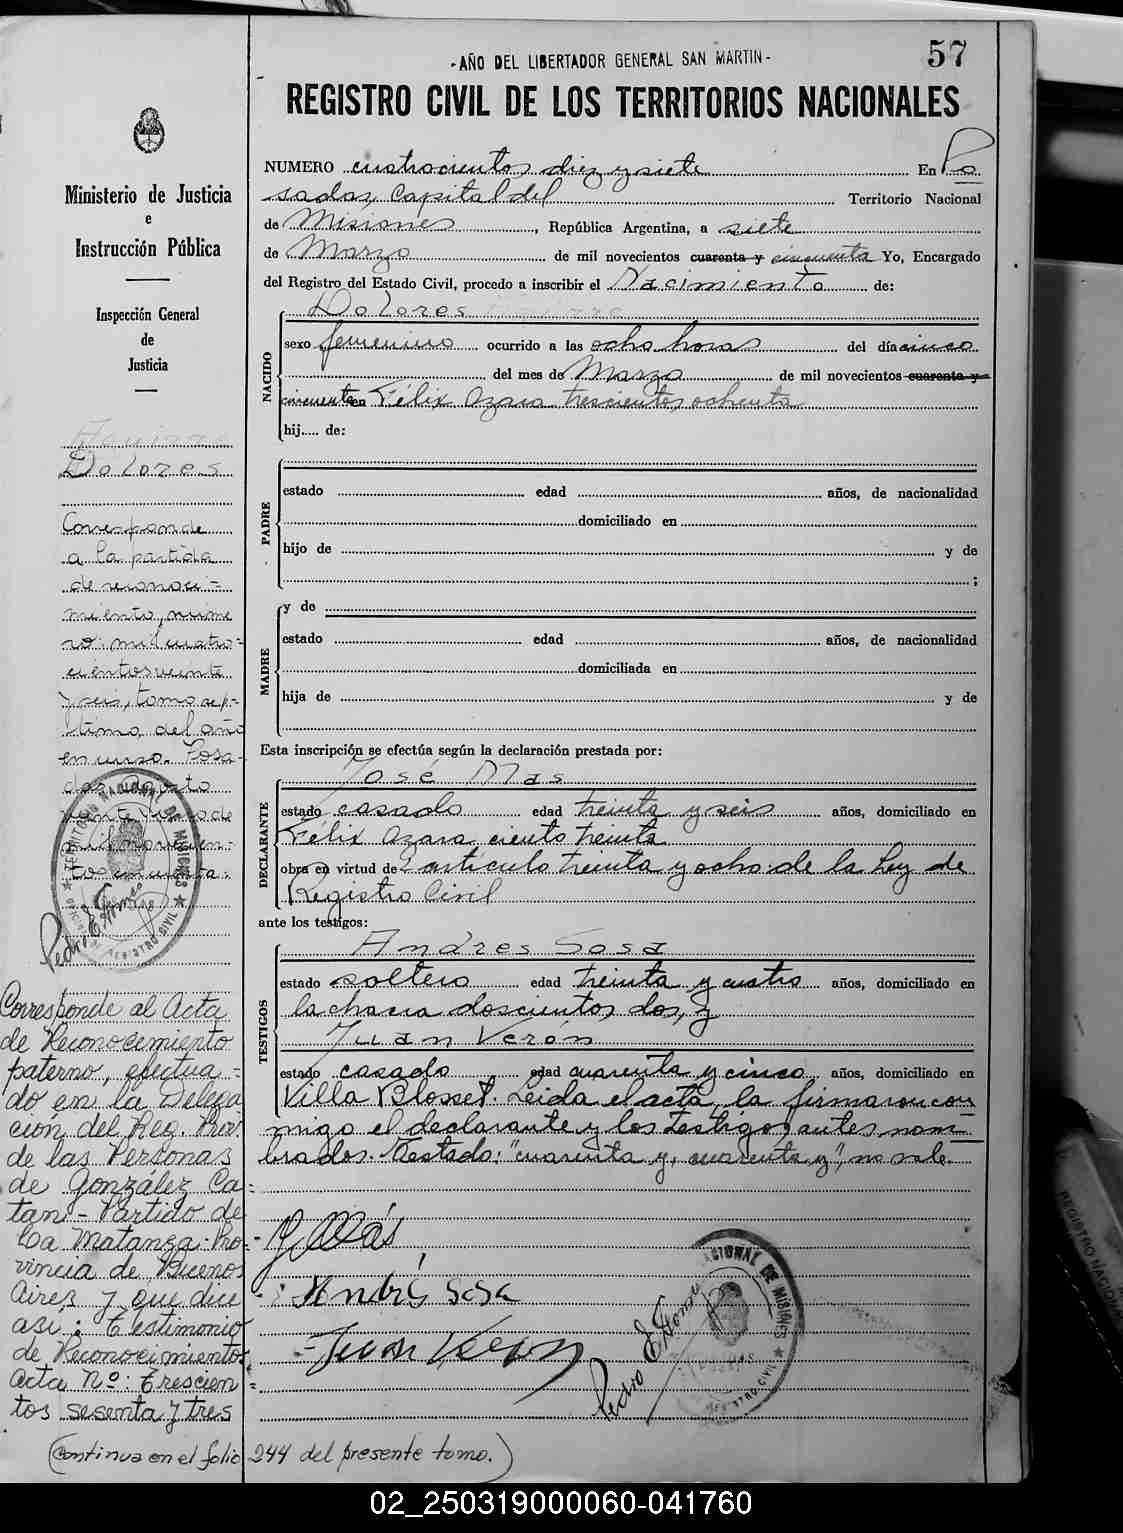 57
-AÑO DEL LIBERTADOR GENERAL SAN MARTIN-
REGISTRO CIVIL DE LOS TERRITORIOS NACIONALES
Ministerio de Justicia
e
Instrucción Pública
Inspección General
de
Justicia
Aguirre
Dolores
Corresponde
a la partida
de reconoci=
miento, núme
ro: mil cuatro=
cientos veinte
y seis, tomo sép=
timo, del año
en curso. Posa=
das, agosto
de
mil novecien=
tos cincuenta.
Corresponde al Acta
de Reconocimiento
paterno, efectua=
do en la Delega
ción del Reg. Prov.
de las Personas
de González Ca=
tan - Partido de
La Matanza - Pro=
vincia de Buenos
Aires y que dice
así: Testimonio
de Reconocimiento
Acta Nº: Trescien
tos sesenta y tres
(Continua en el folio 244 del presente tomo.)
NUMERO cuatrocientos diez y siete En Po
sadas, Capital del Territorio Nacional
de Misiones, República Argentina, a siete
de Marzo de mil novecientos cuarenta y cincuenta Yo, Encargado
del Registro del Estado Civil, procedo a inscribir el Nacimiento de:
NACIDO
Dolores
sexo femenino ocurrido a las ocho horas del día cinco
del mes de Marzo de mil novecientos cuarenta y
cincuenta en Félix Azara trescientos ochenta
hij.... de:
PADRE
estado edad años, de nacionalidad
domiciliado en
hijo de y de
;
MADRE
y de
estado edad años, de nacionalidad
domiciliada en
hija de y de
Esta inscripción se efectúa según la declaración prestada por:
DECLARANTE
José Mas
estado casado edad treinta y seis años, domiciliado en
Félix Azara ciento treinta
obra en virtud de artículo treinta y ocho de la Ley de
Registro Civil
ante los testigos:
TESTIGOS
Andres Sosa
estado soltero edad treinta y cuatro años, domiciliado en
la chacra doscientos dos, y
Juan Verón
estado casado edad cuarenta y cinco años, domiciliado en
Villa Blosset. Leida el acta, la firmaron con
migo el declarante y los testigos antes nom=
brados. Testado: "cuarenta y, cuarenta y", no vale.
J. Mas
Andrés Sosa
Juan Veron
TERRITORIO NACIONAL DE MISIONES
REGISTRO CIVIL
NACIONAL DE MISIONES
REGISTRO CIVIL
REGISTRO NACIONAL
02_250319000060-041760